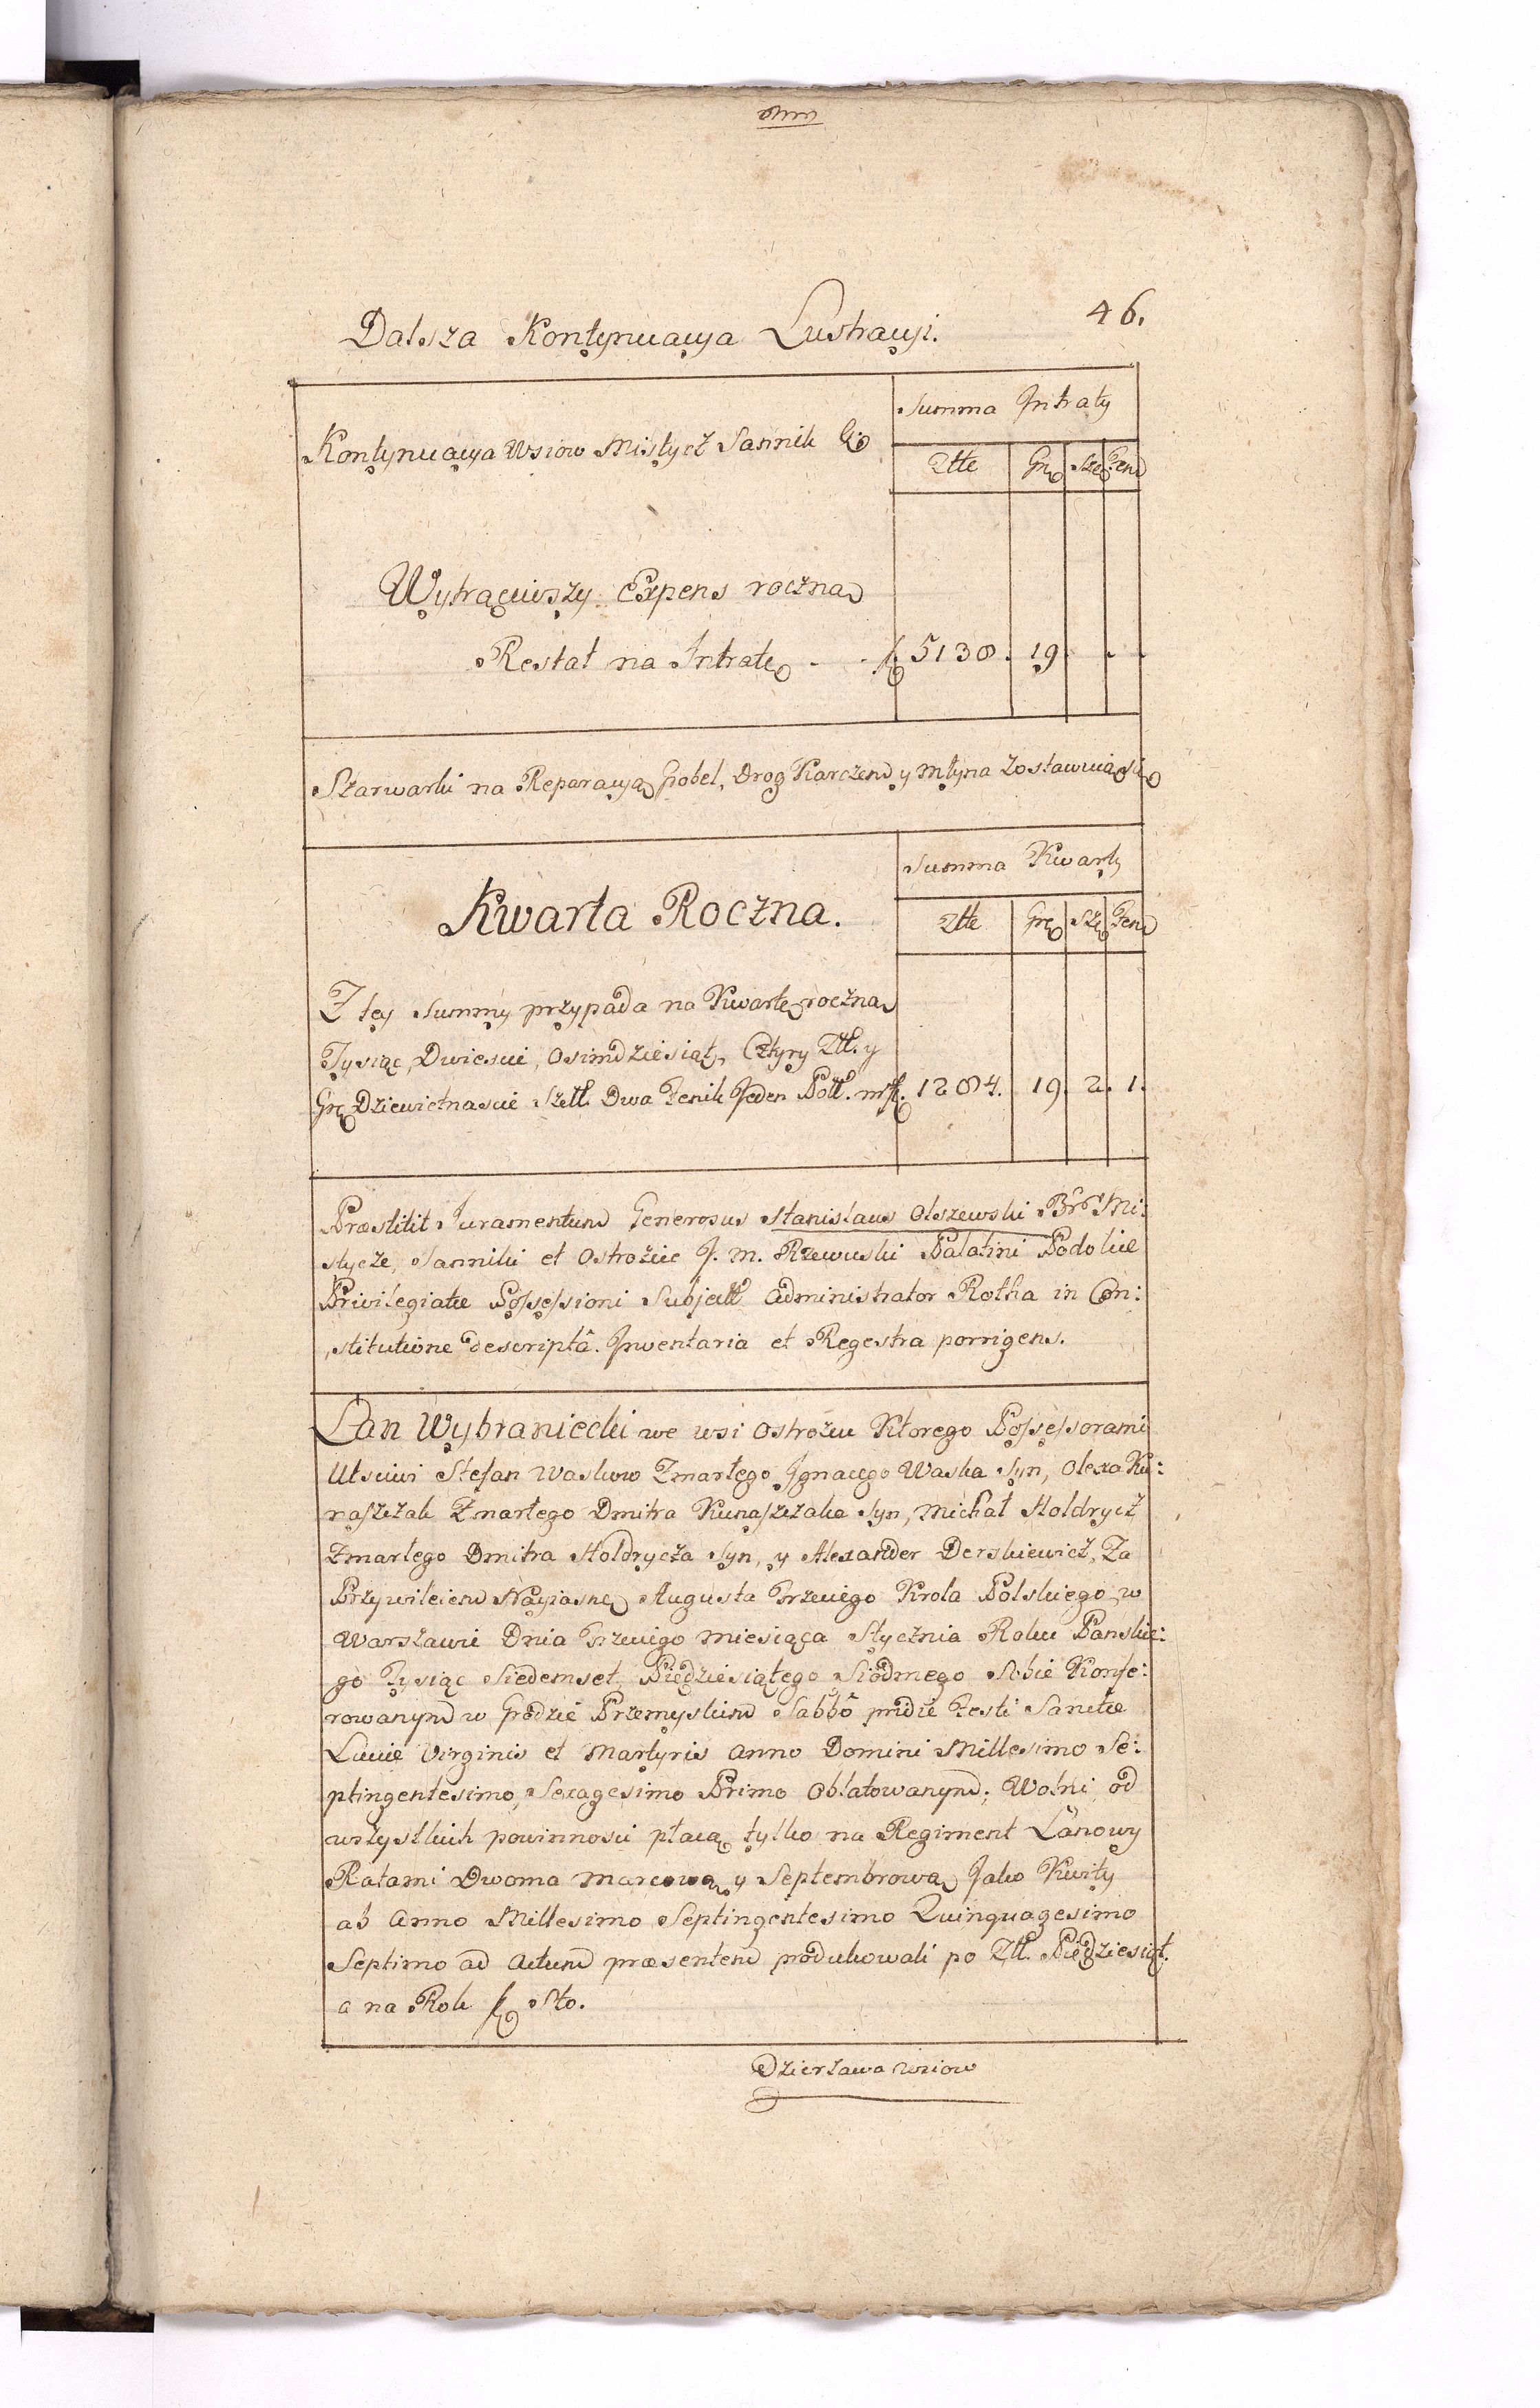 46.
Dalsza Kontynuacya Lustracyi.
Kontynuacya Wsiow Mistycz Sannik &c
Summa Intraty
Złłe Grę Szę Fen
Wytrąciwszy Expens roczną
Restat na Intratę - - f. 5138. 19. . .
Szarwarki na Reparacyą Grobel, Drog Karczem y Młyna zostawuią się
Summa Kwarty
Kwarta Roczna.
Złłe Grę Szę Fen
Z tey Summy przypada na Kwartę roczną
Tysiąc, Dwiescie, Osimdziesiąt, Cztyry Złł. y
Grę Dziewietnascie Szell. Dwa Fenik Jeden Poll. mf. 1284. 19. 2. 1.
Præstitit Juramentum Generosus Stanislaus Olszewski Bŕŕ Mi:
stycze, Sannikì et Ostrozíec J. M. Rzewuski Palatini Podoliæ
Privilegiatæ Possessioni Subject Administrator Rotha in Con:
stitutione descriptâ. Inventaria et Regestra porrigens.
Łan Wybraniecki we wsi Ostrozcu Ktorego Possessorami
Utsciwi Stefan Waskow Zmarłego Ignacego Waska Syn, Olexa Ku:
naszczak Zmarłego Dmitra Kunaszczaka Syn, Michał Hołdrycz
Zmarłego Dmitra Hołdrycza Syn, y Alexander Derskiewicz, Za
Przywileiem Nayiasnę Augusta Trzeciego Krola Polskiego w
Warszawie Dnia Trzeciego Miesiąca Stycznia Roku Panskie:
go Tysiąc Siedemset Piędziesiątego Siodmego Sobie Konfe:
rowanym w Grodzie Przemyskim Sabbô pridie Festi Sanctæ
Luciæ Virginis et Martyris Anno Domini Millesimo Se:
ptingentesimo, Sexagesimo Primo Oblatowanym; Wolni od
wszystkich powinnosci płacą tylko na Regiment Łanowy
Ratami Dwoma Marcową y Septembrową Jako Kwity
ab Anno Millesimo Septingentesimo Quinquagesimo
Septimo ad Actum præsentem produkowali po Złł. Piędziesiąt.
a na Rok f. Sto.
Dzierzawa Wsiow